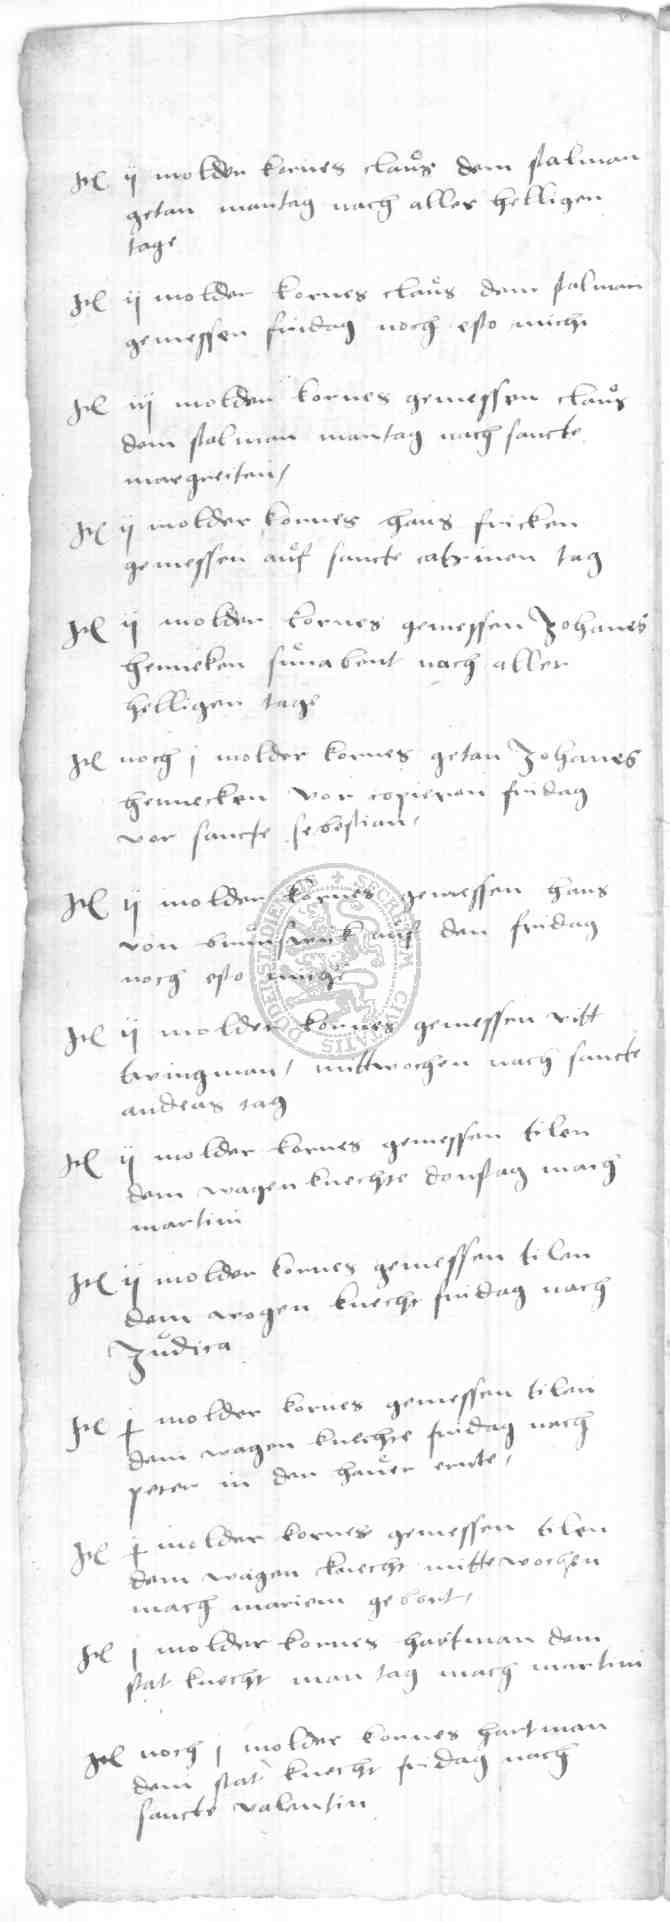 Jtem ij molder kornes claus dem stalman
getan mantag nach aller helligen
tage
Jtem ij molder kornes claus dem stalman
gemessen fridag noch esto michi
Jtem iij molder kornes gemessen claus
dem stalman mantag nach sancte
margreten
Jtem ij molder kornes hans fricken
gemessen auf sancte catrinen tag
Jtem ij molder kornes gemessen Johanes
henneken sunabent nach aller
helligen tage
Jtem noch j molder kornes getan Johanes
hennecken vor copieren fridag
vor sancte sebestian
Jtem ij molder kornes gemessen hans
von brunswick auf den fridag
noch esto
Jtem ij molder kornes gemessen
twingman mittwochen nach sancte
andeas tag
Jtem ij molder kornes gemessen tilen
dem wagen knechte donstag nach
martini
Jtem ij molder kornes gemessen tilen
dem wogen knecht fridag nach
Judica
Jtem j molder kornes gemessen tilen
dem wagen knechte fridag nach
peter in der hauer ernte
Jtem j molder kornes gemessen tilen
dem wagen knecht mittewochen
nach marien gebort
Jtem j molder kornes hartman dem
stat knecht mantag nach martini
Jtem noch j molder kornes hartman
dem stat knecht fridag nach
sancte valentin
SECRETUM CIVITATIS DUDERSTADIENSIS